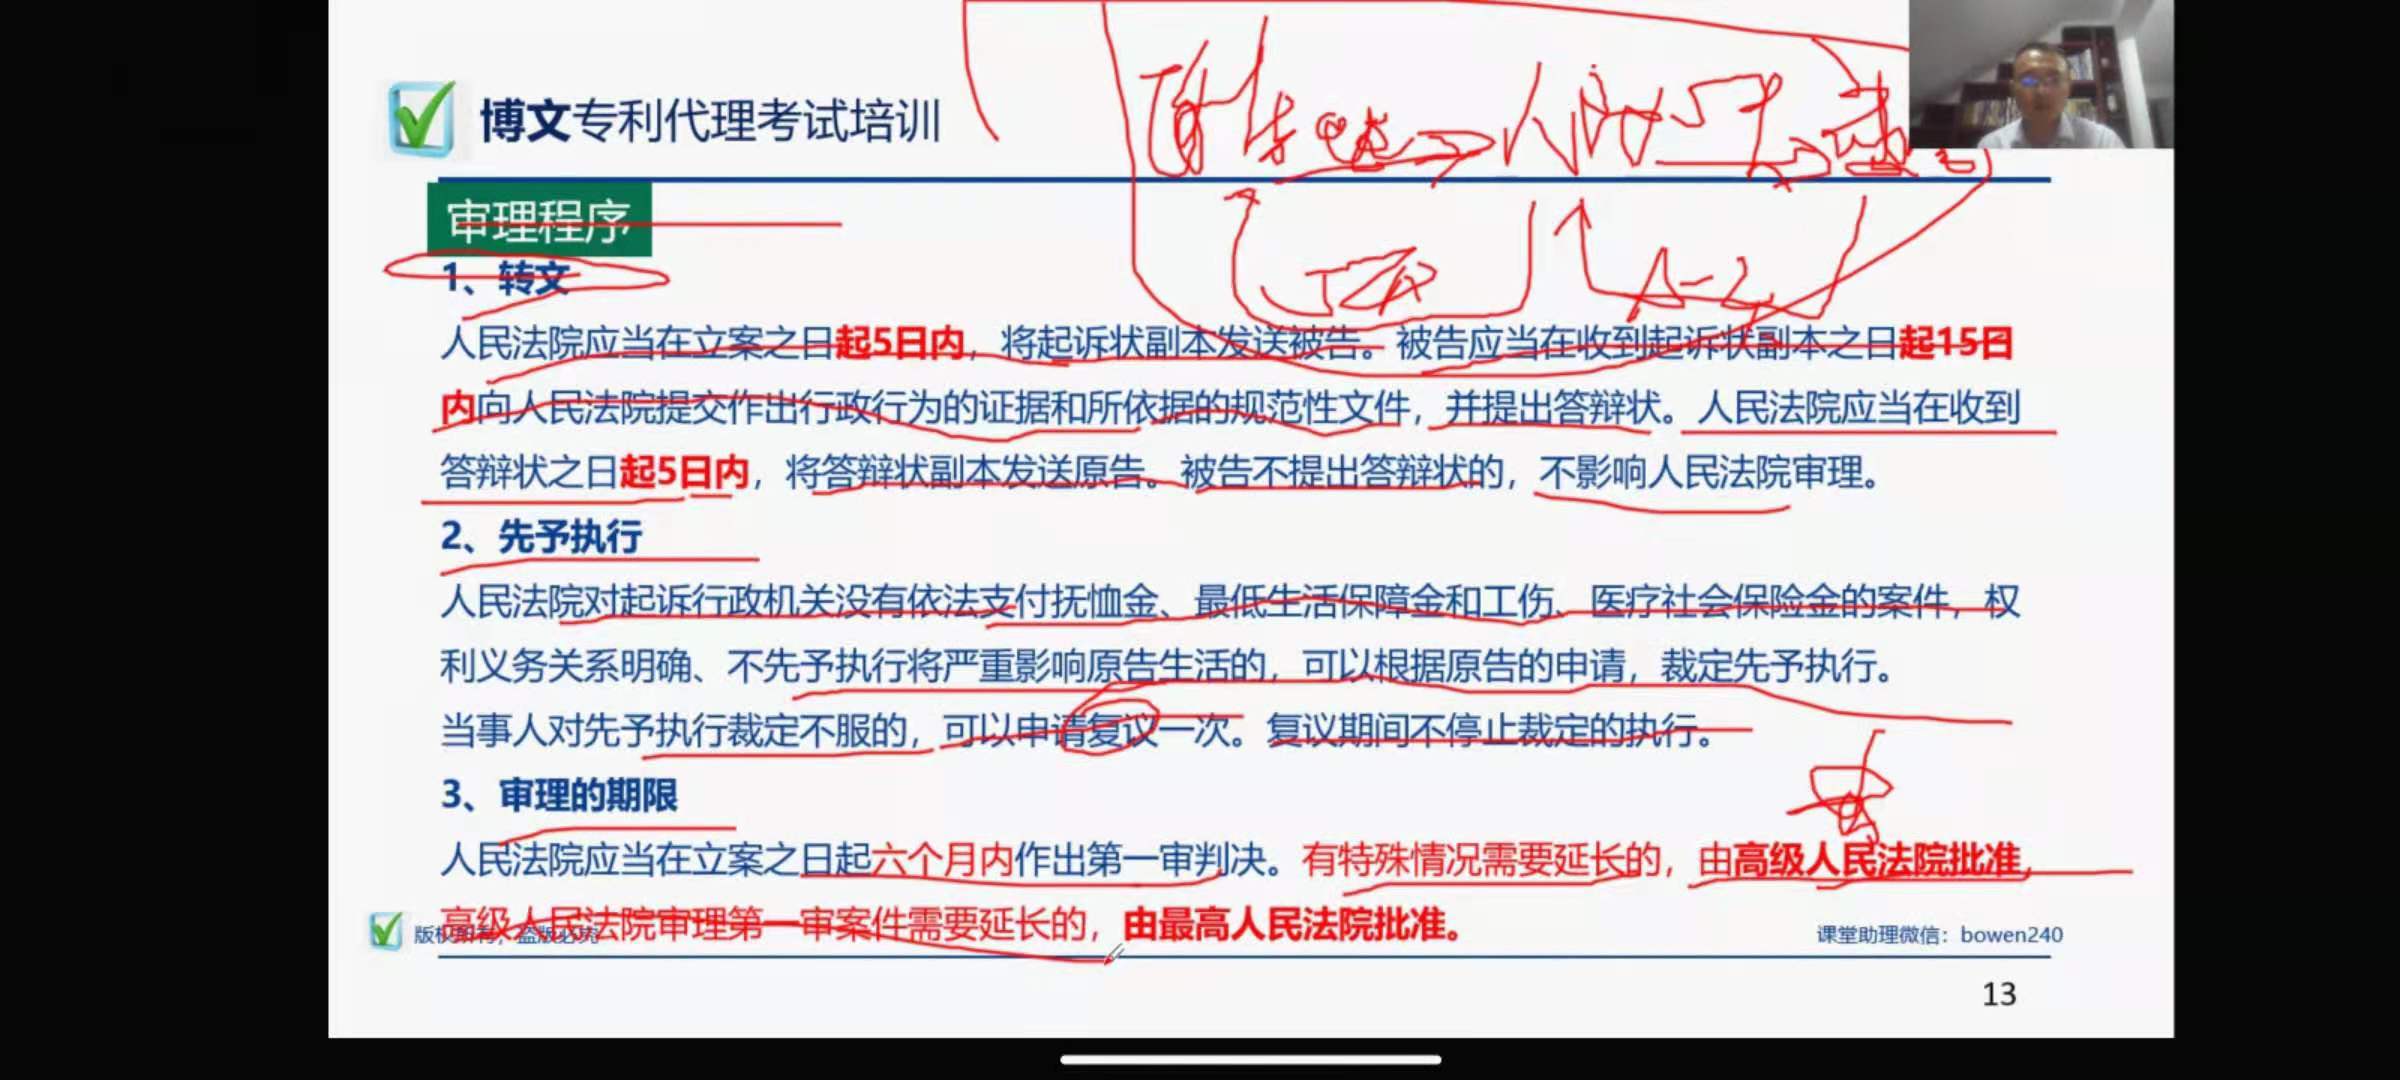 博文专利代理考试培训
审理程序
1、转文
人民法院应当在立案之日起5日内，将起诉状副本发送被告。被告应当在收到起诉状副本之日起15日
内向人民法院提交作出行政行为的证据和所依据的规范性文件，并提出答辩状。人民法院应当在收到
答辩状之日起5日内，将答辩状副本发送原告。被告不提出答辩状的，不影响人民法院审理。
2、先予执行
人民法院对起诉行政机关没有依法支付抚恤金、最低生活保障金和工伤、医疗社会保险金的案件，权
利义务关系明确、不先予执行将严重影响原告生活的，可以根据原告的申请，裁定先予执行。
当事人对先予执行裁定不服的，可以申请复议一次。复议期间不停止裁定的执行。
3、审理的期限
人民法院应当在立案之日起六个月内作出第一审判决。有特殊情况需要延长的，由高级人民法院批准，
高级人民法院审理第一审案件需要延长的，由最高人民法院批准。
版权所有，盗版必究
课堂助理微信：bowen240
13